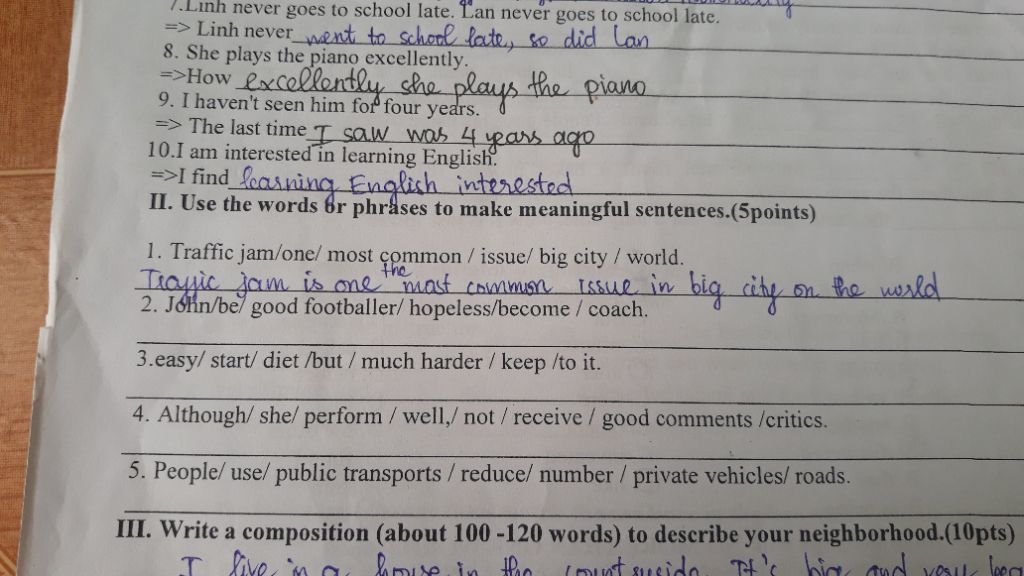 7.Linh never goes to school late. Lan never goes to school late.
=> Linh never went to school late, so did Lan
8. She plays the piano excellently.
=>How excellently she plays the piano
9. I haven't seen him for four years.
=> The last time I saw was 4 years ago
10.I am interested in learning English.
=>I find learning English interested
II. Use the words or phrases to make meaningful sentences.(5points)
1. Traffic jam/one/ most common / issue/ big city / world.
Traffic jam is one the most common issue in big city on the world
2. John/be/ good footballer/ hopeless/become / coach.
3.easy/ start/ diet /but / much harder / keep /to it.
4. Although/ she/ perform / well,/ not / receive / good comments /critics.
5. People/ use/ public transports / reduce/ number / private vehicles/ roads.
III. Write a composition (about 100 -120 words) to describe your neighborhood.(10pts)
I live in a house in the It's big and very